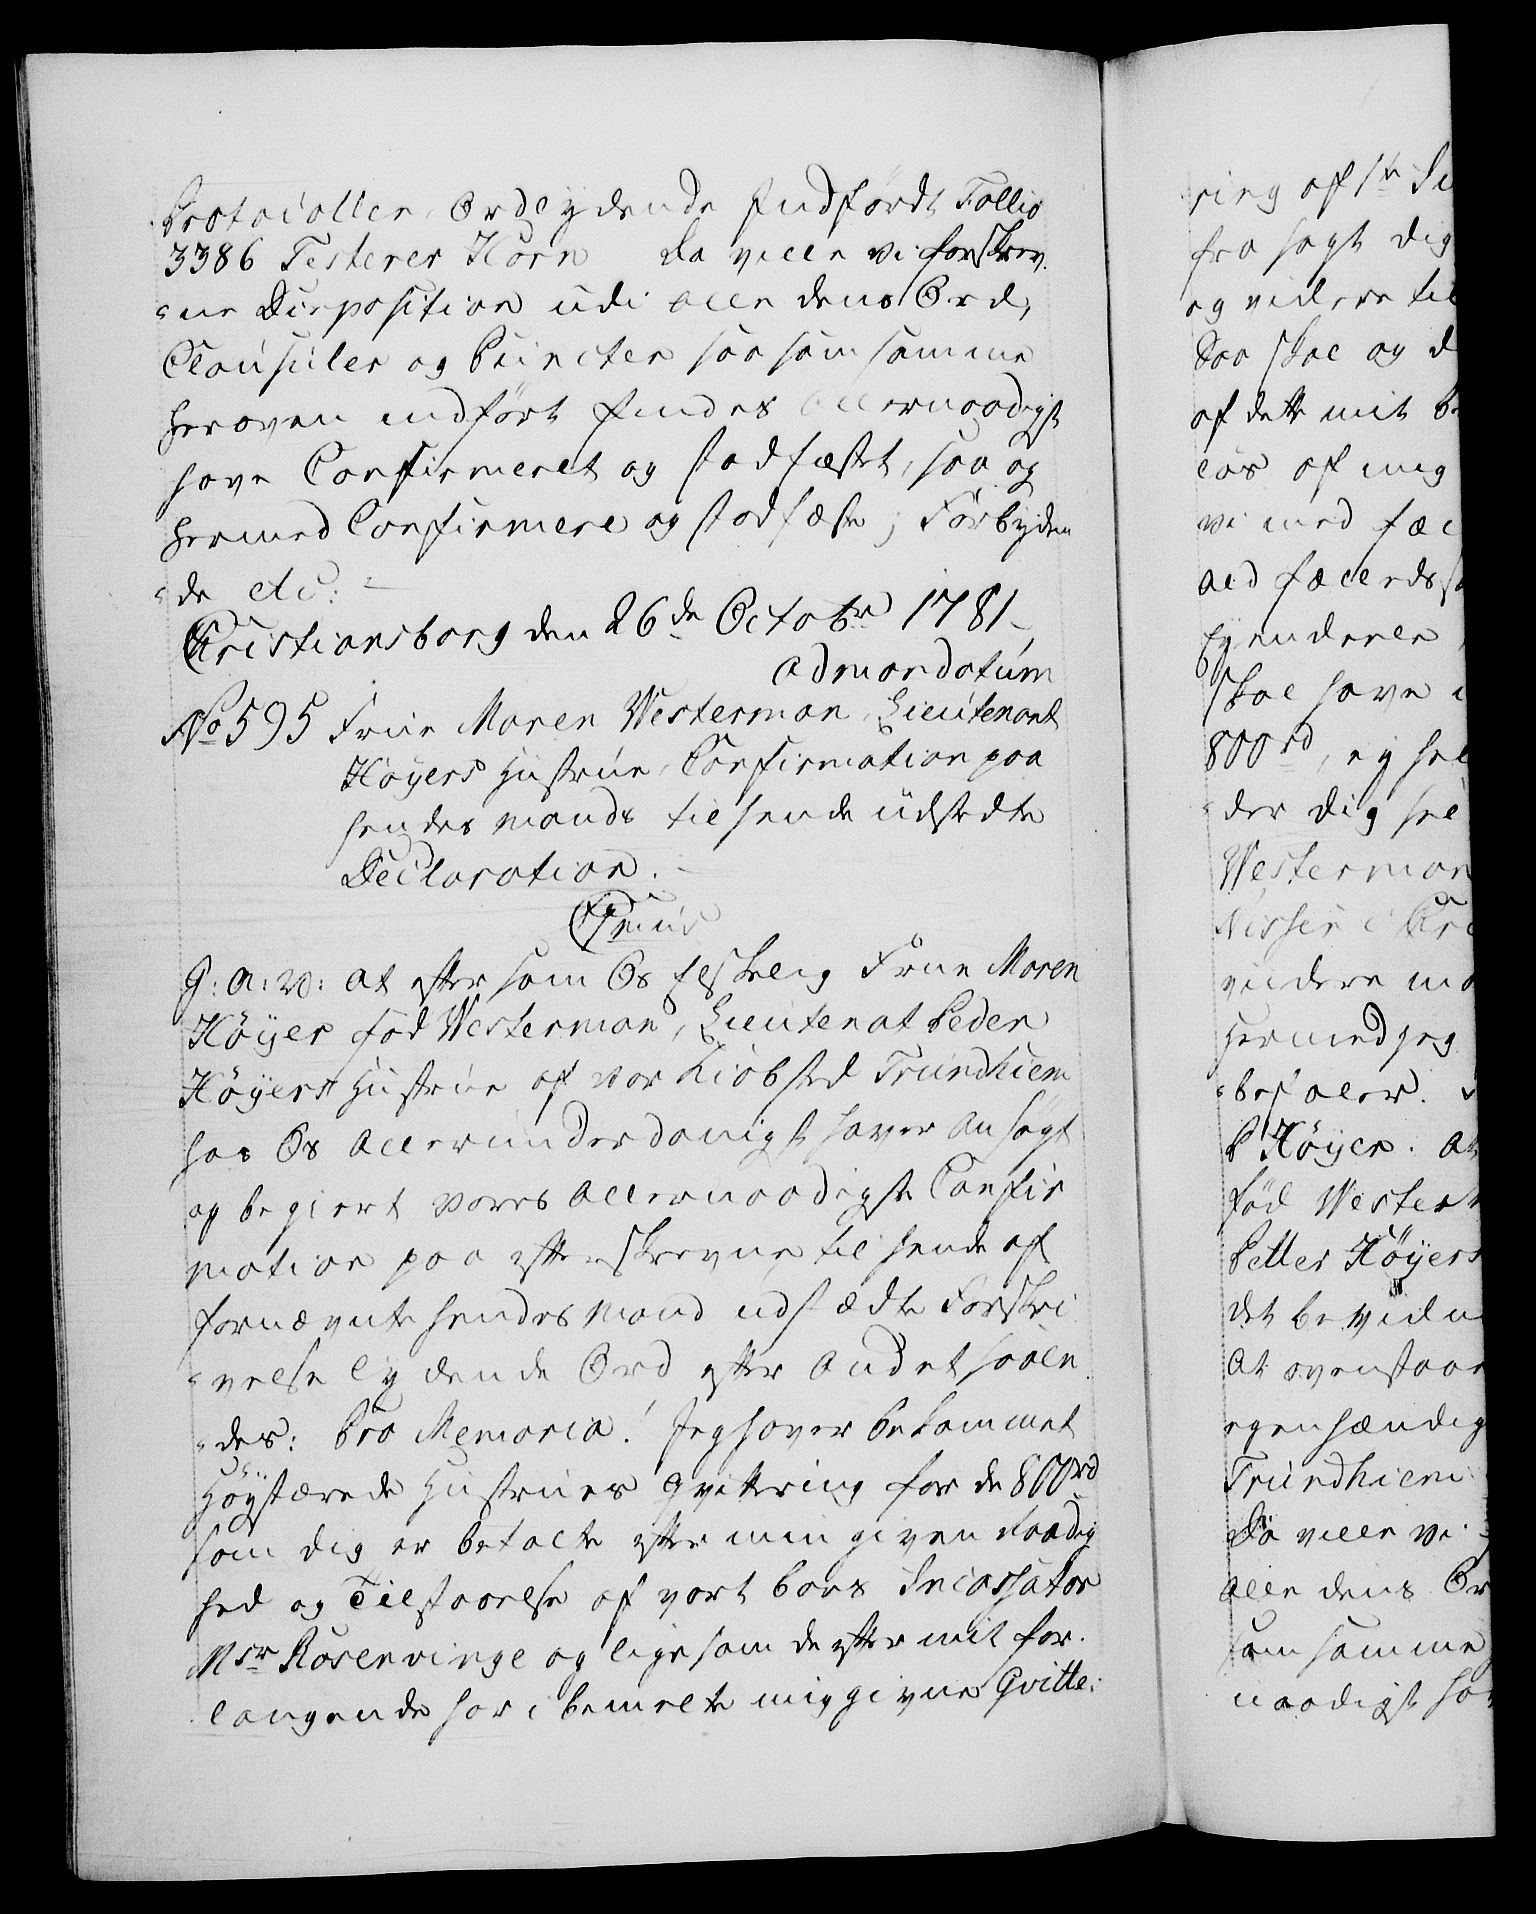 Protocollen Ordlydende Indført Follio
3386 Testerer Horn Da ville vi forskrev
ne Disposition udi alle dens Ord,
Clausuler og Puncter saa som samme
heroven indført findes allernaadigst
have Confirmeret og stadfæstet, saa og
hermed Confirmere og stadfæste; Forbyden
de etc:
Christiansborg den 26de Octobr 1781
admandatum
No 595 Frue Maren Westerman, Lieutenant
Høyers Hustrue, Confirmation paa
hendes Mands til hende udstedte
Declaration.
G: A: V: at eftersom Os elskelig Frue Maren
Høyer fød Westerman, Lieutenat Peder
Høyers Hustrue af vor Kiøbsted Trundhiem
hos Os allerunderdanigst haver ansøgt
og begiert vores allernaadigste Confir
mation paa efterskrevne til hende af
fornævnte hendes Mand udstædte Forskri
velse lydende Ord efter andet saale
des: Pro Memoria! Jeg haver bekommet
Høystærede Hustrues Qvittering for de 800rd
som dig er betalte efter min given Naadig
hed og Tilstaaelse af vort Boes Incassator
Msr Rosenvinge og ligesom de efter mit for
langende har i bemelte mig givne Qvitte:
ring af 1te
fra sagt dig
og videre til
Saa skal og
af dette mit
løs af mig
vi med fæl
ald fælleds
Eyendeele
skal have
800rd, ey hel
der dig sel
Westerman
Nissen i
videre
Hermed jeg
befaler.
P Høyer. At
fød Wester
Petter Høyers
det bevidn
At ovenstaae
egenhændig
Trundhiem
Da ville vi
alle dens Or
som samme
naadigst ha